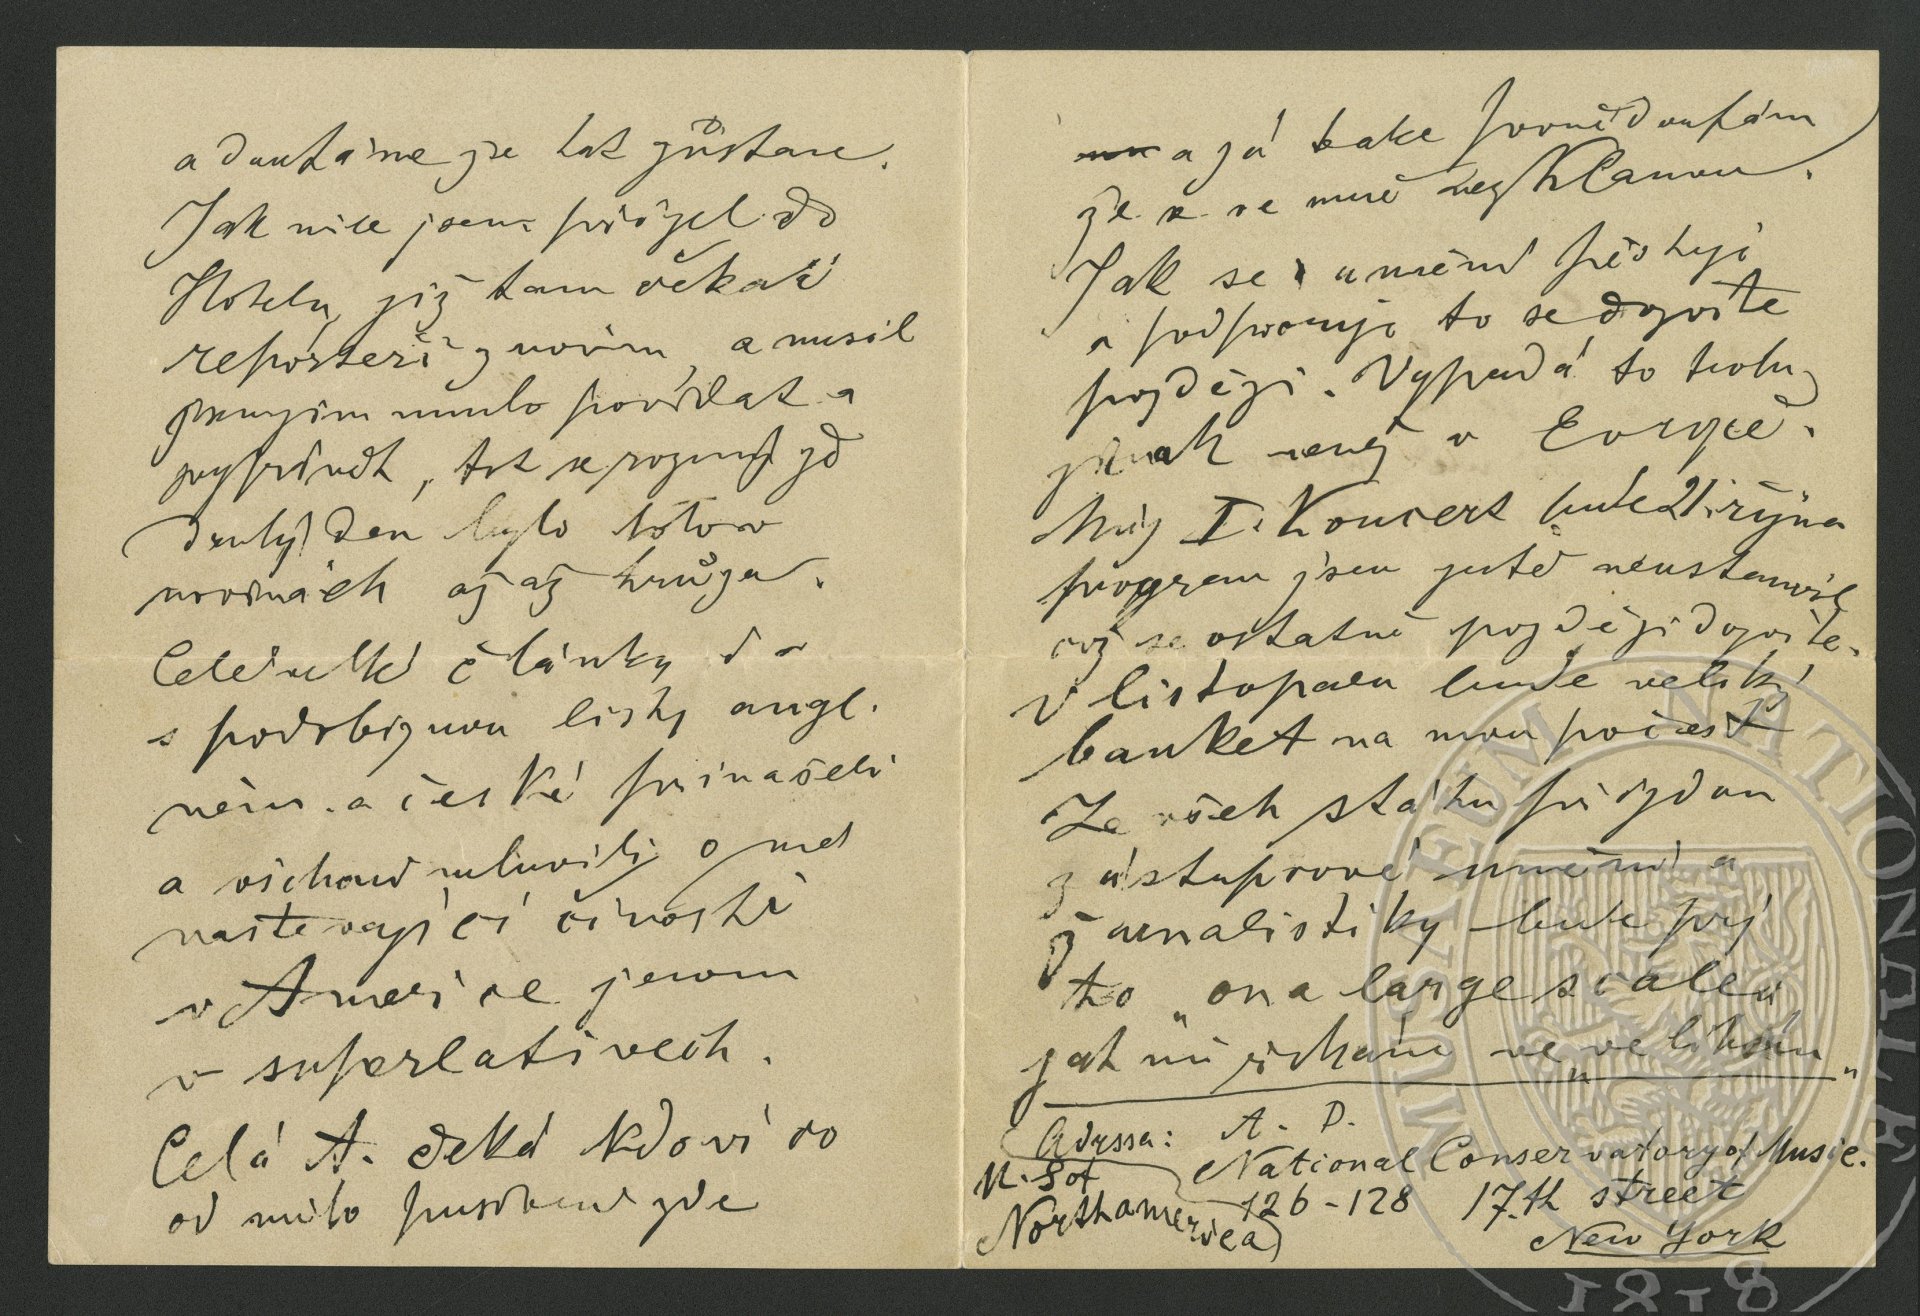 a doufáme že tak zůstane.
Jak mile jsem přijel do
Hotelu, již tam čekali
reportéři z novin, a musil
jsem jim mnoho povídat a
, tak se rozumí že
druhý den bylo toho v
novinách až až hrůza.
Celé velké články
s podobiznou listy angl.
něm. a české přinášeli
a všichni mluvili o mé
nastávající činnosti
v Americe jenom
v superlativech.
Celá A. čeká kdo ví co
od mého působení zde
a já také pevně doufám
že se ve mně nezklamou.
Jak se umění pěstují
a podporují to se dozvíte
později. Vypadá to trochu
jinak než v Evropě.
Můj I. Koncert bude 21. října
program jsem ještě neustanovil
což se ostatně později dozvíte.
V listopadu bude veliký
banket na mou počest
Ze všech států přijdou
zástupcové umění a
žurnalistiky bude prý
to „on a large scale"
jak mi říkám ve velikém"
Adressa: A. D.
National Conservatory of Music.
126-128 17.th street
New York
U. S of
Northamerica
MUSAEUM NATIONALE
1818